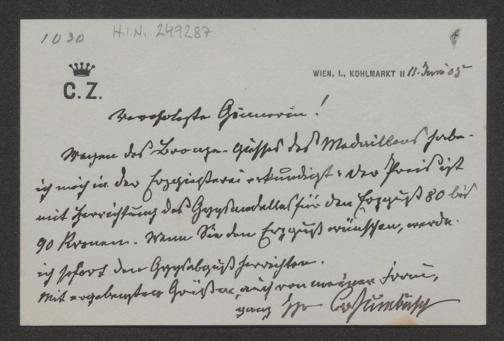 1030
H.I.N. 249287
C. Z.
WIEN, I., KOHLMARKT 11 11. Juni 05
Verehrteste Gönnerin!
Wegen des Bronze-Gusses des Medaillons habe
ich mich in der Erzgießerei erkundigt: der Preis ist
mit Herrichtung des Gypsmodelles für den Erzguß 80 bis
90 Kronen. Wenn Sie den Erzguß wünschen, werde
ich sofort den Gypsabguß herrichten.
Mit ergebensten Grüßen, auch von meiner Frau,
ganz Ihr